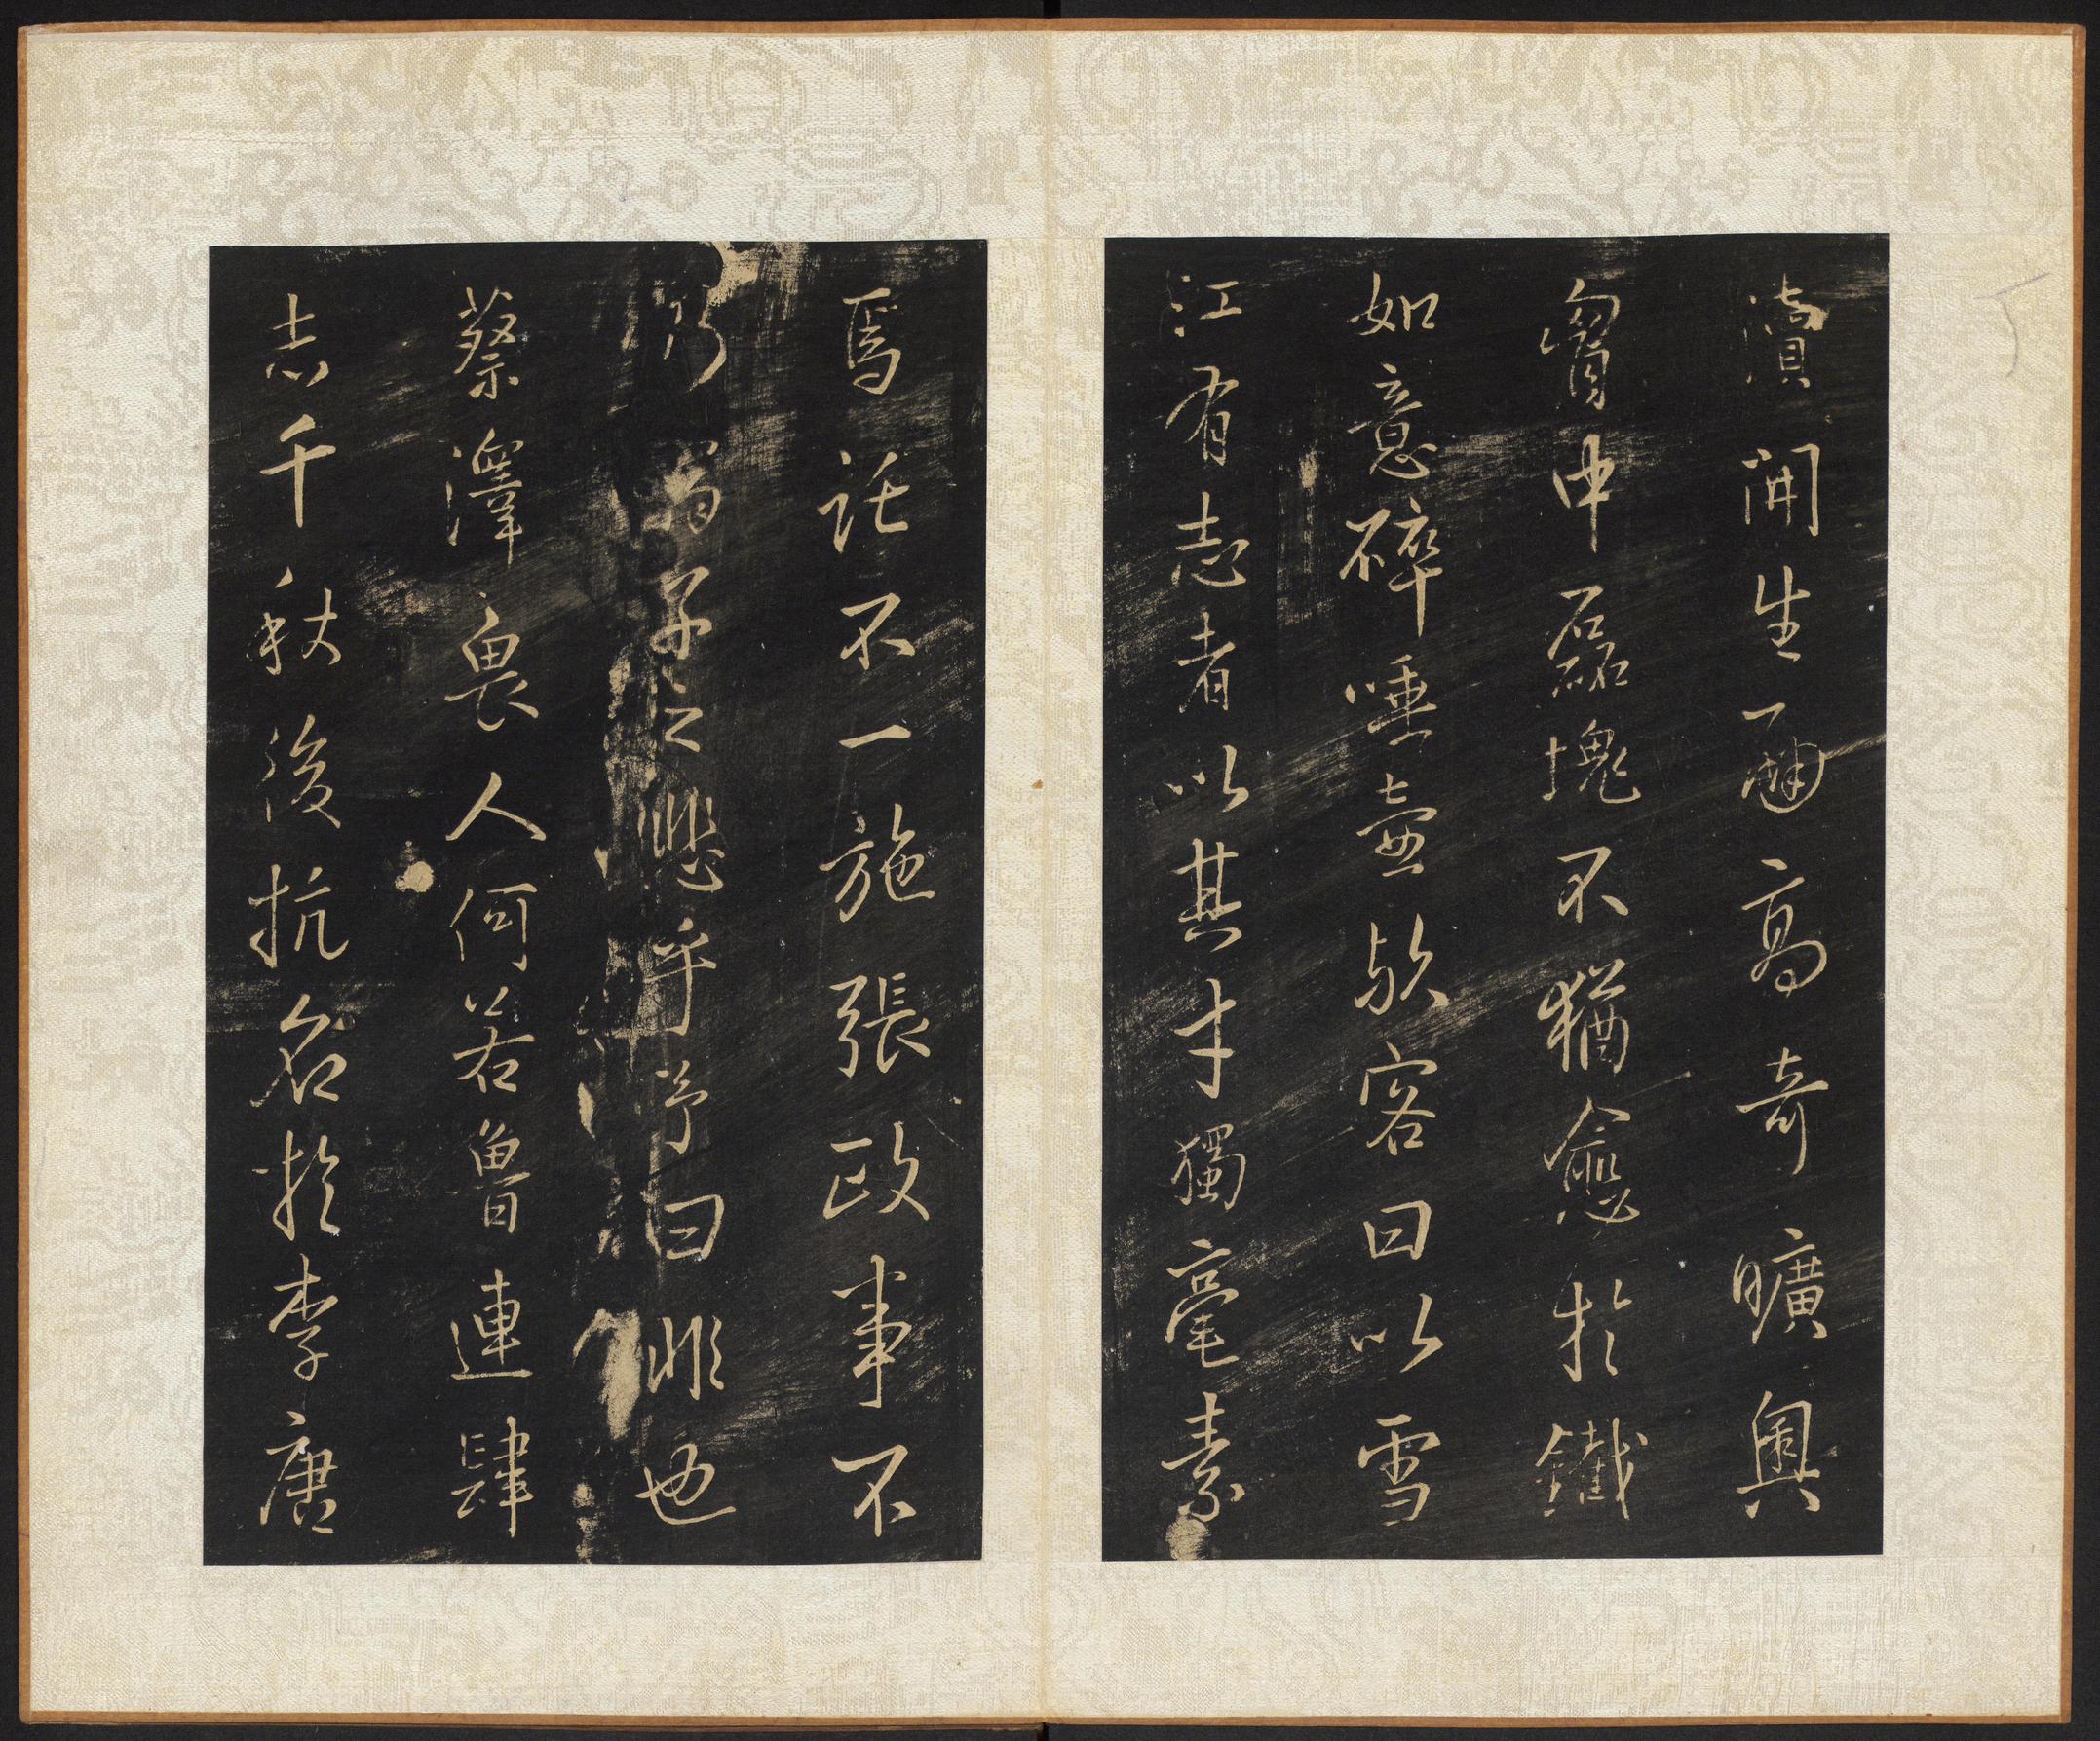 瀆開生面高奇曠奧
胷中磊塊不猶愈於鐵
如意碎唾壺歟客曰以雪
江有志者以其才獨毫素
焉託不一施張政事不
乃為子之悲乎予曰非也
蔡澤畏人何若魯連肆
志千秋後抗名於李唐